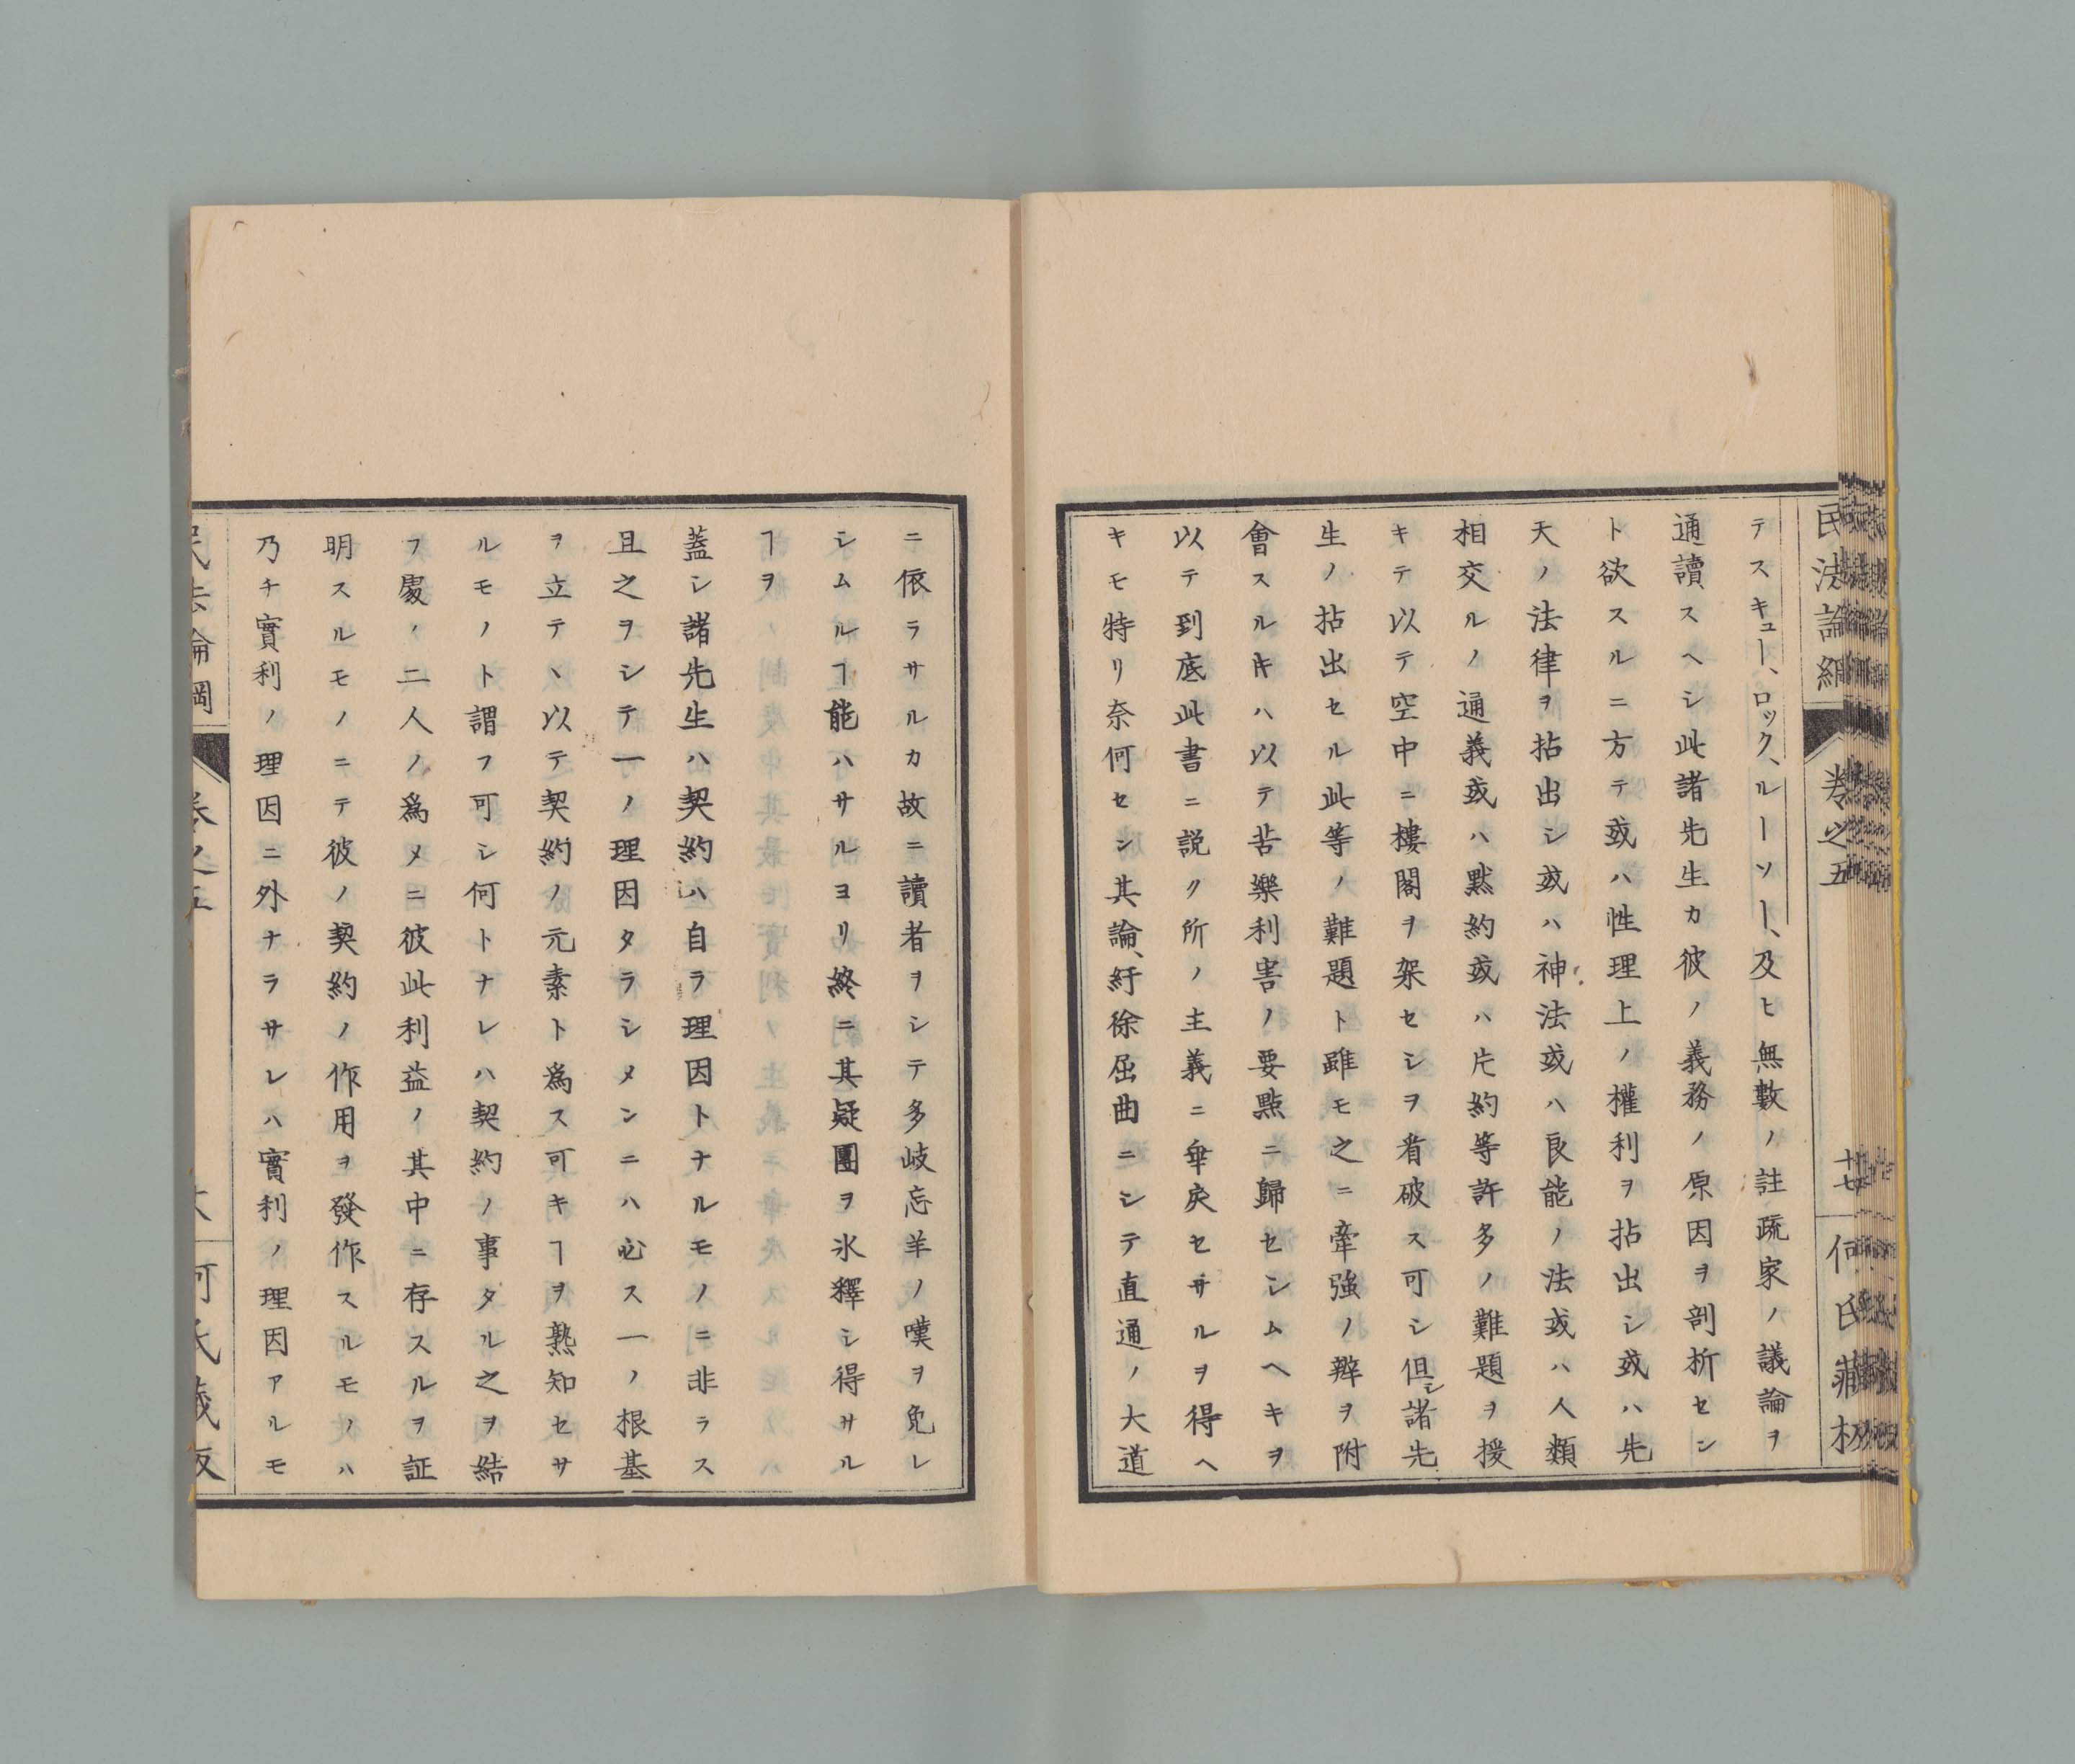 民法論綱
卷之五
十七
何氏藏板
テスキュー、ロック、ルーソー、及ヒ無數ノ註疏家ノ議論ヲ
通讀スヘシ此諸先生カ彼ノ義務ノ原因ヲ剖析セン
ト欲スルニ方テ或ハ性理上ノ權利ヲ拈出シ或ハ先
天ノ法律ヲ拈出シ或ハ神法或ハ良能ノ法或ハ人類
相交ルノ通義或ハ黙約或ハ片約等許多ノ難題ヲ援
キテ以テ空中ニ樓閣ヲ架セシヲ看破ス可シ但シ諸先
生ノ拈出セル此等ノ難題ト雖モ之ニ牽強ノ辨ヲ附
會スルキハ以テ苦樂利害ノ要點ニ歸センムヘキヲ
以テ到底此書ニ説ク所ノ主義ニ牟戻セサルヲ得ヘ
キモ特リ奈何セン其論、紆徐屈曲ニシテ直通ノ大道
ニ依ラサルカ故ニ讀者ヲシテ多岐忘羊ノ嘆ヲ免レ
シムルヿ能ハサルヨリ終ニ其疑團ヲ氷釋シ得サル
ヿヲ
蓋シ諸先生ハ契約ハ自ラ理因トナルモノニ非ラス
且之ヲシテ一ノ理因タラシメンニハ必ス一ノ根基
ヲ立テヽ以テ契約ノ元素ト爲ス可キヿヲ熟知セサ
ルモノト謂フ可シ何トナレハ契約ノ事タル之ヲ結
フ處ノ二人ノ爲メニ彼此利益ノ其中ニ存スルヲ証
明スルモノニテ彼ノ契約ノ作用ヲ發作スルモノハ
乃チ實利ノ理因ニ外ナラサレハ實利ノ理因アルモ
民法論綱
卷之五
何氏藏板